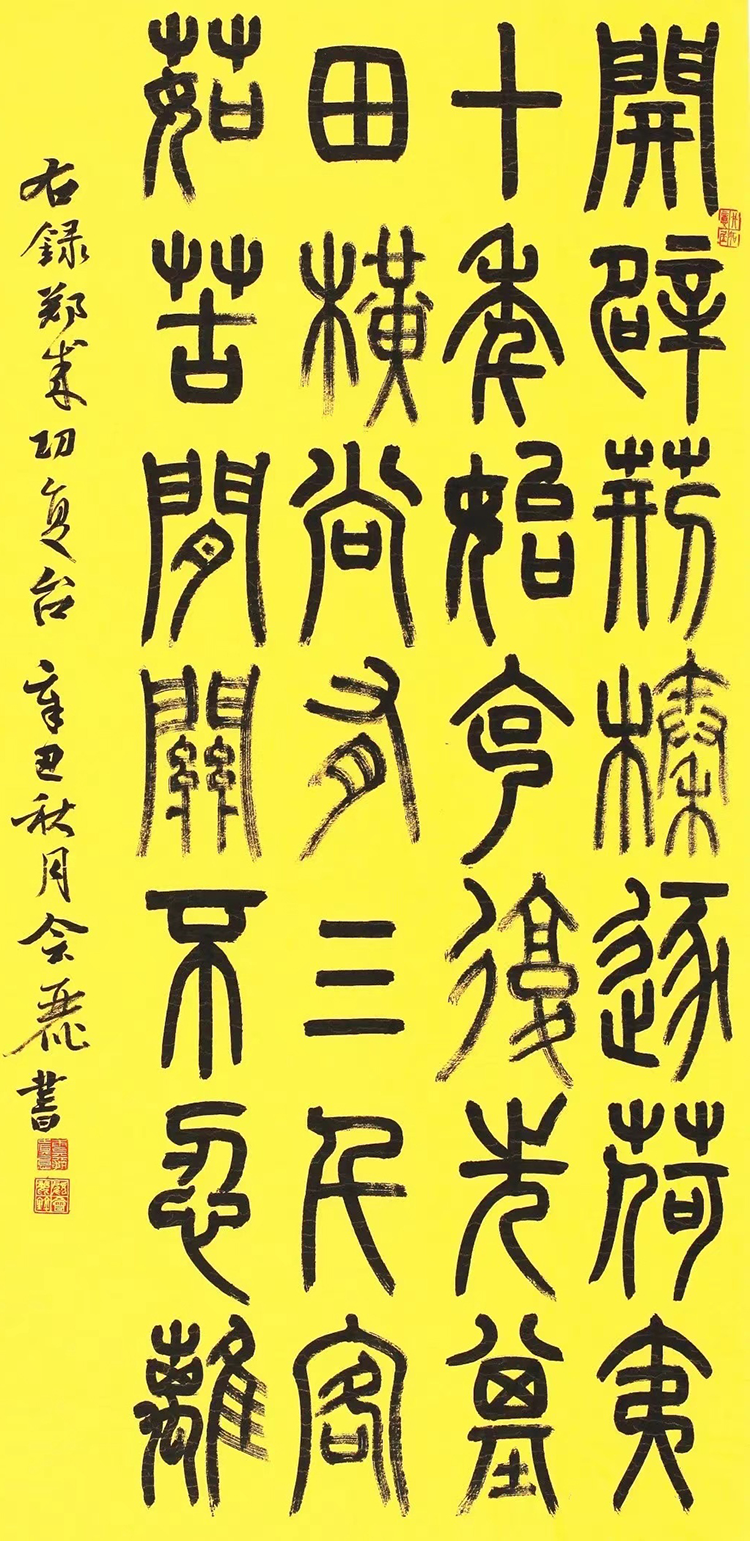 開辟荊榛逐荷夷
十年始克復先基
田橫尚有三千客
茹苦間關不忍離
右録鄭成功复台 辛丑秋月会麗書